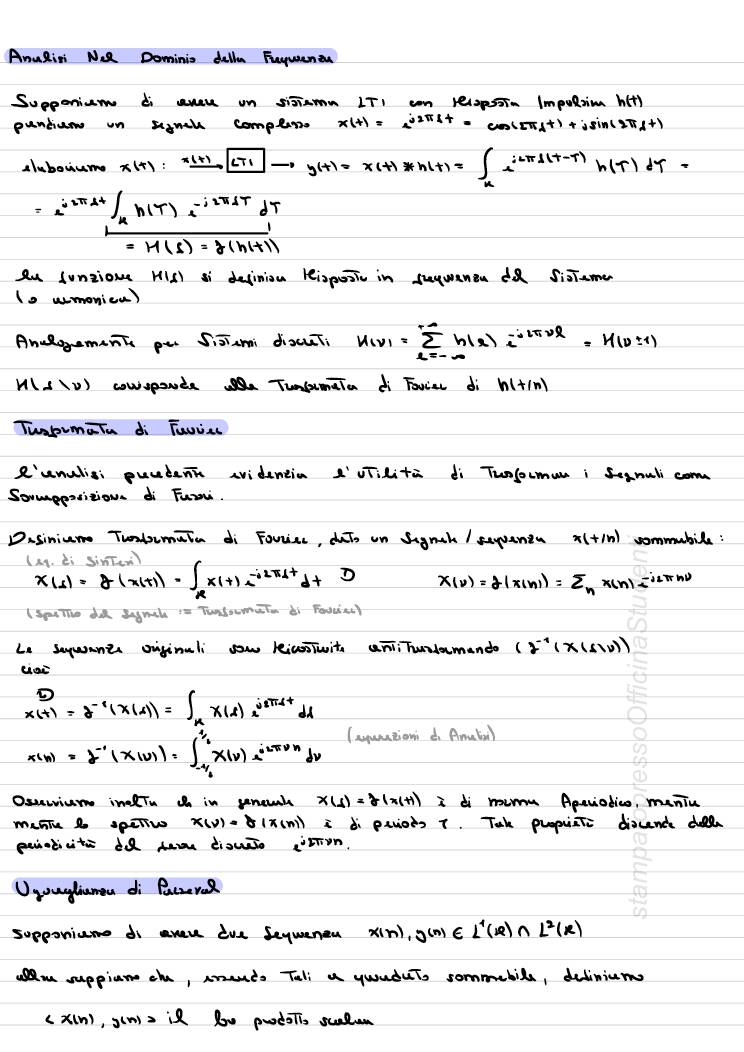 Analisi Nel Dominio della Frequenza
Supponiamo di avere un sistema LTI con Risposta Impulsiva h(t)
prendiamo un segnale complesso x(t) = e^{j2πft} = cos(2πft) + jsin(2πft)
elaboriamo x(t) : x(t) → LTI → y(t) = x(t) * h(t) = ∫_R e^{j2πf(t-τ)} h(τ) dτ =
= e^{j2πft} ∫_R h(τ) e^{-j2πfτ} dτ
= H(f) = F(h(t))
la funzione H(f) si definisce Risposta in frequenza del Sistema
(o armonica)
Analogamente per Sistemi discreti H(ν) = Σ_{l=-∞}^{+∞} h(l) e^{-j2πνl} = H(ν±1)
H(f\ν) corrisponde alla Trasformata di Fourier di h(t/n)
Trasformata di Fourier
L'analisi precedente evidenzia l'utilità di Trasformare i Segnali come
Sovrapposizione di Fasori.
Definiamo Trasformata di Fourier, dato un Segnale/sequenza x(t/n) sommabile:
(eq. di Sintesi)
X(f) = F(x(t)) = ∫_R x(t) e^{-j2πft} dt X(ν) = F(x(n)) = Σ_n x(n) e^{-j2πnν}
(spettro del segnale := Trasformata di Fourier)
Le sequenze originali sono Ricostruite antiTrasformando (F^{-1}(X(f\ν))
cioè
x(t) = F^{-1}(X(f)) = ∫_R X(f) e^{j2πft} df
x(n) = F^{-1}(X(ν)) = ∫_{-1/2}^{1/2} X(ν) e^{j2πνn} dν
(equazioni di Analisi)
Osserviamo inoltre che in generale X(f) = F(x(t)) è di norma Aperiodico, mentre
mentre lo spettro X(ν) = F(x(n)) è di periodo 1. Tale proprietà discende dalla
periodicità del fasore discreto e^{j2πνn}.
Uguaglianza di Parseval
Supponiamo di avere due Sequenze x(n), y(n) ∈ L^1(R) ∩ L^2(R)
allora sappiamo che, essendo Tali a quadrato sommabile, definiamo
< x(n), y(n) > il loro prodotto scalare
stampatopressoOfficinaStudenti